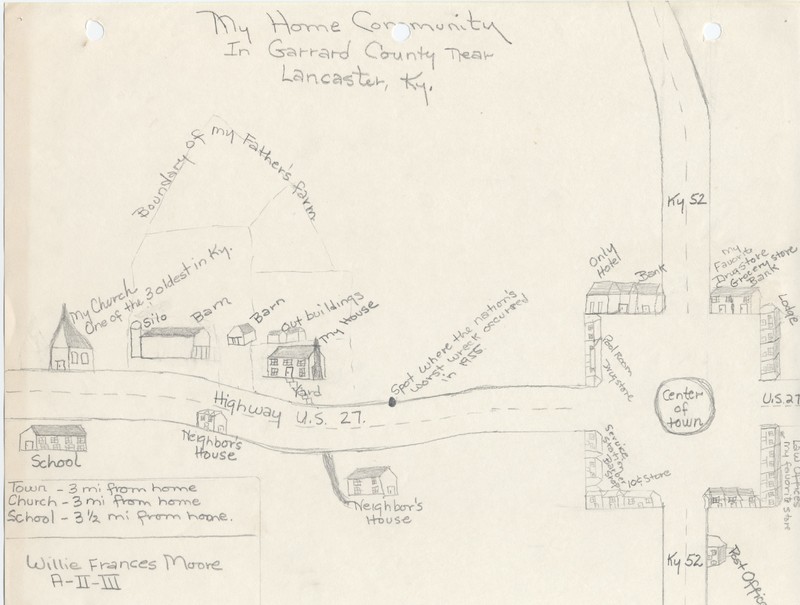 My Home Community
In Garrard County near
Lancaster, Ky.
Boundary of my Father's farm
Ky 52
only
Hotel
Bank
my
Favorite
Drugstore
Grocery store
Bank
Lodge
My Church
One of the 3 oldest in Ky.
Silo
Barn
Barn
Out buildings
My House
Yard
Spot where the nation's
worst wreck occurred
in 1955
Pool Room
Drugstore
Highway U.S. 27.
Center
of
town
U.S. 27
School
Neighbor's
House
Neighbor's
House
Service
Station
Barber
Shop
10¢ Store
Law Offices
my favorite store
Town - 3 mi from home
Church - 3 mi from home
School - 3 1/2 mi from home.
Willie Frances Moore
A-II-III
Ky 52
Post Office